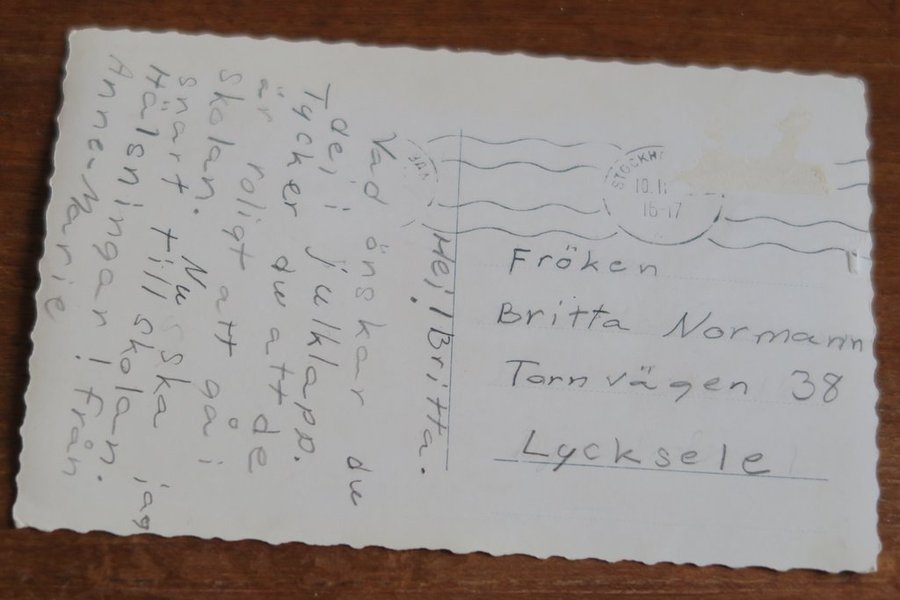 Hej! Britta.
Vad önskar du
dej i julklapp.
Tycker du att de
är roligt att gå i
skolan. Nu ska jag
snart till skolan.
Hälsningar! från
Anne-Marie
STOCKH
16-17
Fröken
Britta Normann
Tornvägen 38
Lycksele